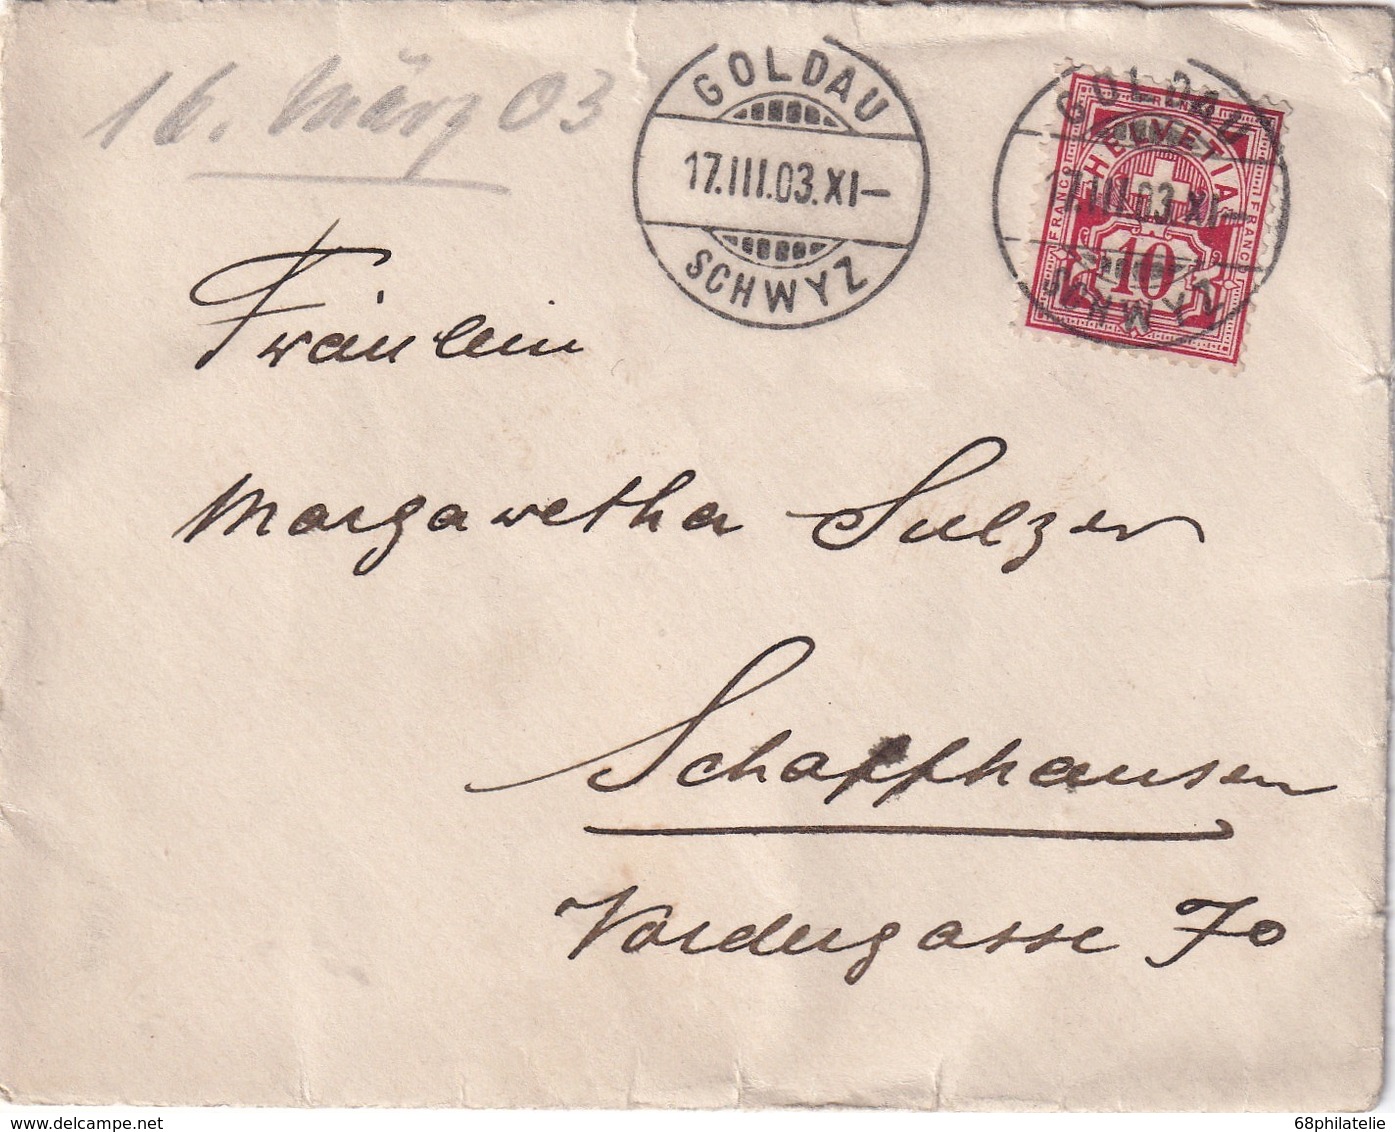 16. März 03
GOLDAU
17.III.03.XI–
SCHWYZ
GOLDAU
17.III.03.XI–
SCHWYZ
FRANCO
HELVETIA
FRANCO
FRANCO
10
Fräulein
Margaretha Sulzer
Schaffhausen
Vordergasse 70
68philatelie